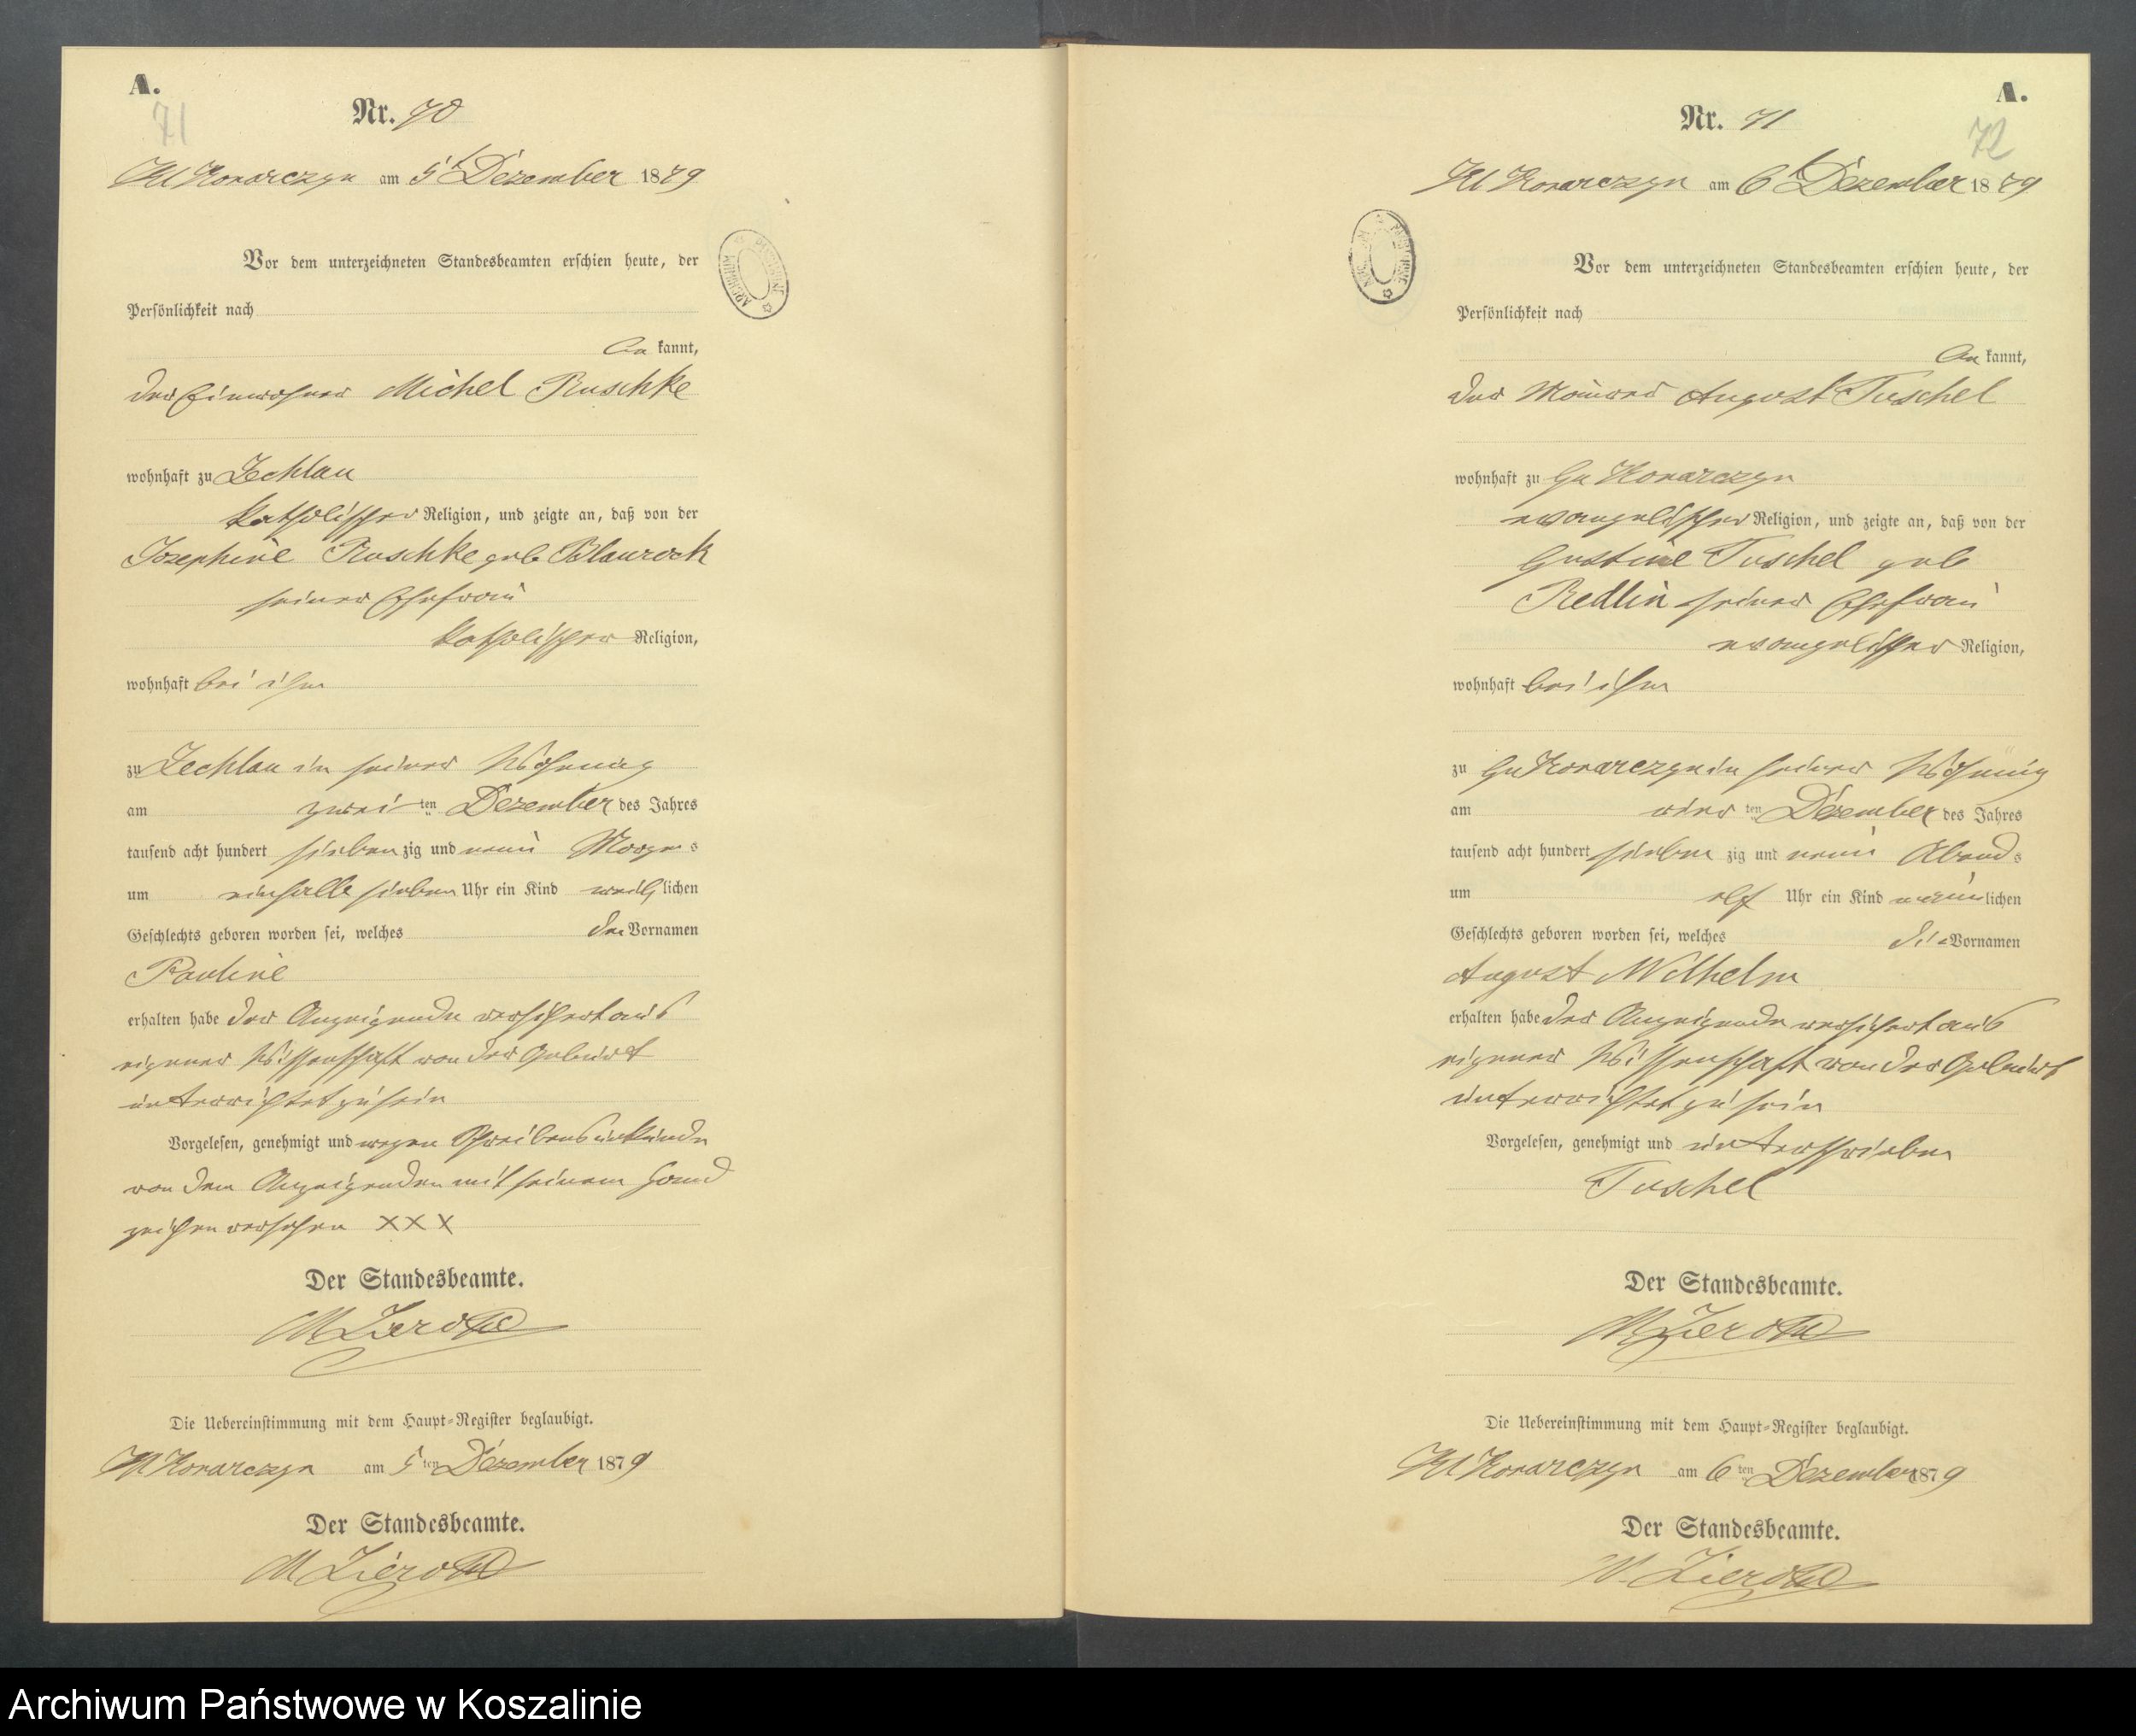 A.
71
Nr. 70
Kl Konarczyn am 5t Dezember 1879
Vor dem unterzeichneten Standesbeamten erschien heute, der
Persönlichkeit nach
be kannt,
der Einwohner Michel Ruschke
wohnhaft zu Zechlau
katholischer Religion, und zeigte an, daß von der
Josephine Ruschke geb Blaurock
seiner Ehefrau
katholischer Religion,
wohnhaft bei ihm
zu Zechlau in seiner Wohnung
am zwei ten Dezember des Jahres
tausend acht hundert sieben zig und neun Morgens
um einhalb sieben Uhr ein Kind weiblichen
Geschlechts geboren worden sei, welches den Vornamen
Pauline
erhalten habe der Anzeigende versichert aus
eigener Wissenschaft von der Geburt
unterrichtet zu sein
Vorgelesen, genehmigt und wegen Schreibensunkunde
von dem Anzeigenden mit seinem Hand
zeichen versehen XXX
Der Standesbeamte.
Die Uebereinstimmung mit dem Haupt-Register beglaubigt.
Kl Konarczyn am 5ten Dezember 1879
Der Standesbeamte.
A.
72
Nr. 71
Kl Konarczyn am 6t Dezember 1879
Vor dem unterzeichneten Standesbeamten erschien heute, der
Persönlichkeit nach
be kannt,
der Maurer August Tuschel
wohnhaft zu Gr Konarczyn
evangelischer Religion, und zeigte an, daß von der
Gustine Tuschel geb
Redlin seiner Ehefrau
evangelischer Religion,
wohnhaft bei ihm
zu Gr Konarczyn in seiner Wohnung
am vier ten Dezember des Jahres
tausend acht hundert sieben zig und neun Abends
um elf Uhr ein Kind männlichen
Geschlechts geboren worden sei, welches die Vornamen
August Wilhelm
erhalten habe der Anzeigende versichert aus
eigener Wissenschaft von der Geburt
unterrichtet zu sein
Vorgelesen, genehmigt und unterschrieben
Tuschel
Der Standesbeamte.
Die Uebereinstimmung mit dem Haupt-Register beglaubigt.
Kl Konarczyn am 6ten Dezember 1879
Der Standesbeamte.
Archiwum Państwowe w Koszalinie